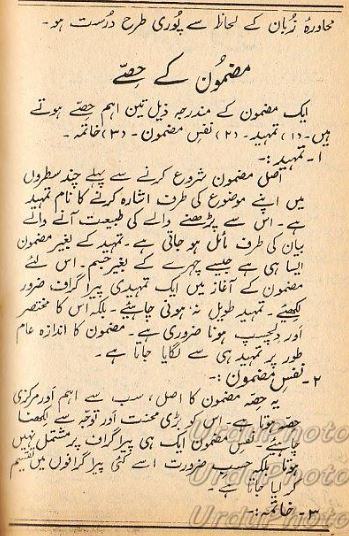 محاورۂ زبان کے لحاظ سے پُوری طرح درست ہو۔
مضمُون کے حِصّے
ایک مضمون کے مندرجہ ذیل تین اہم حِصّے ہوتے
ہیں۔ (۱) تمہید۔ (۲) نفسِ مضمون۔ (۳) خاتمہ۔
۱۔ تمہید :۔
اصل مضمون شروع کرنے سے پہلے چند سطروں
میں اپنے موضوع کی طرف اشارہ کرنے کا نام تمہید
ہے۔ اس سے پڑھنے والے کی طبیعت آنے والے
بیان کی طرف مائل ہو جاتی ہے۔ تمہید کے بغیر مضمون
ایسا ہی ہے جیسے چہرے کے بغیر جسم۔ اس لئے
مضمون کے آغاز میں ایک تمہیدی پیرا گراف ضرور
لکھیئے۔ تمہید طویل نہ ہونی چاہیئے۔ بلکہ اس کا مختصر
اور دلچسپ ہونا ضروری ہے۔ مضمون کا اندازہ عام
طور پر تمہید ہی سے لگایا جاتا ہے۔
۲۔ نفسِ مضمون :۔
یہ حصّہ مضمون کا اصل، سب سے اہم اور مرکزی
حصّہ ہوتا ہے۔ اس کو بڑی محنت اور توجّہ سے لکھنا
چاہیئے۔ نفس مضمون ایک ہی پیرا گراف پر مشتمل نہیں
ہوتا بلکہ حسبِ ضرورت اسے کئی پیرا گرافوں میں تقسیم
کر لیا جاتا ہے۔
۳۔ خاتمہ :۔
UrduPhoto
UrduPhoto
UrduPhoto